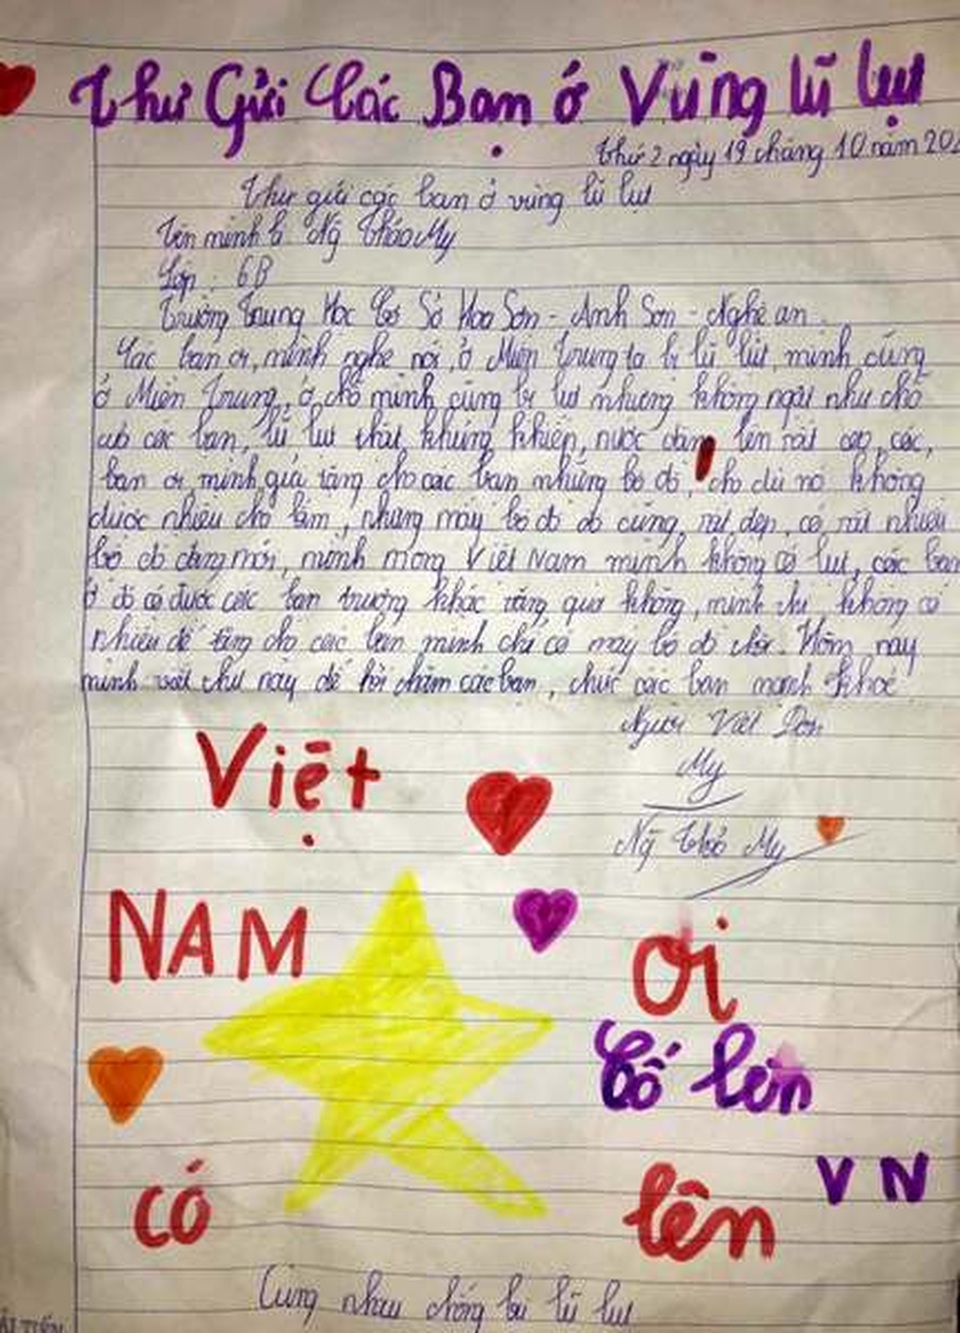 Thư Gửi Các Bạn ở Vùng lũ lụt
Thứ 2 ngày 19 tháng 10 năm 202
Thư gửi các bạn ở vùng lũ lụt
Tên mình là Ng Thảo My
Lớp : 6B
Trường Trung Học Cơ Sở Hoa Sơn - Anh Sơn - Nghệ an.
Các bạn ơi, mình nghe nói, ở Miền Trung ta bị lũ lụt, mình cũng
ở Miền Trung, ở chỗ mình cũng bị lụt nhưng không ngặt như chỗ
các bạn, lũ lụt thật khủng khiếp, nước dâng lên rất cao, các,
bạn ơi mình gửi tặng cho các bạn những bộ đồ, cho dù nó không
được nhiều cho lắm, nhưng mấy bộ đồ đó cũng, rất đẹp, có rất nhiều
bộ đồ đang mới, mình mong Việt Nam mình không có lụt, các bạn
ở đó có được các bạn trường khác tặng quà không, mình thì không có
nhiều để tặng cho các bạn mình chỉ có mấy bộ đồ thôi. Hôm nay
mình viết thư này để hỏi thăm các bạn, chúc các bạn mạnh khoẻ
Người Viết Đơn
My
Ng Thảo My
Việt
NAM ơi
Cố lên
VN
cố lên
Cùng nhau chống lũ lụt